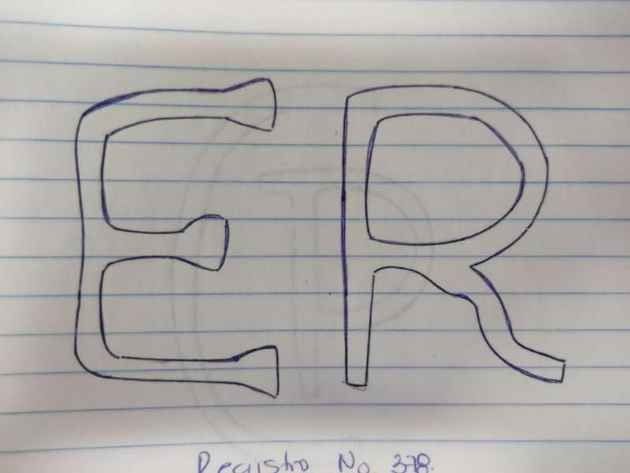 ER
Registro No 378.